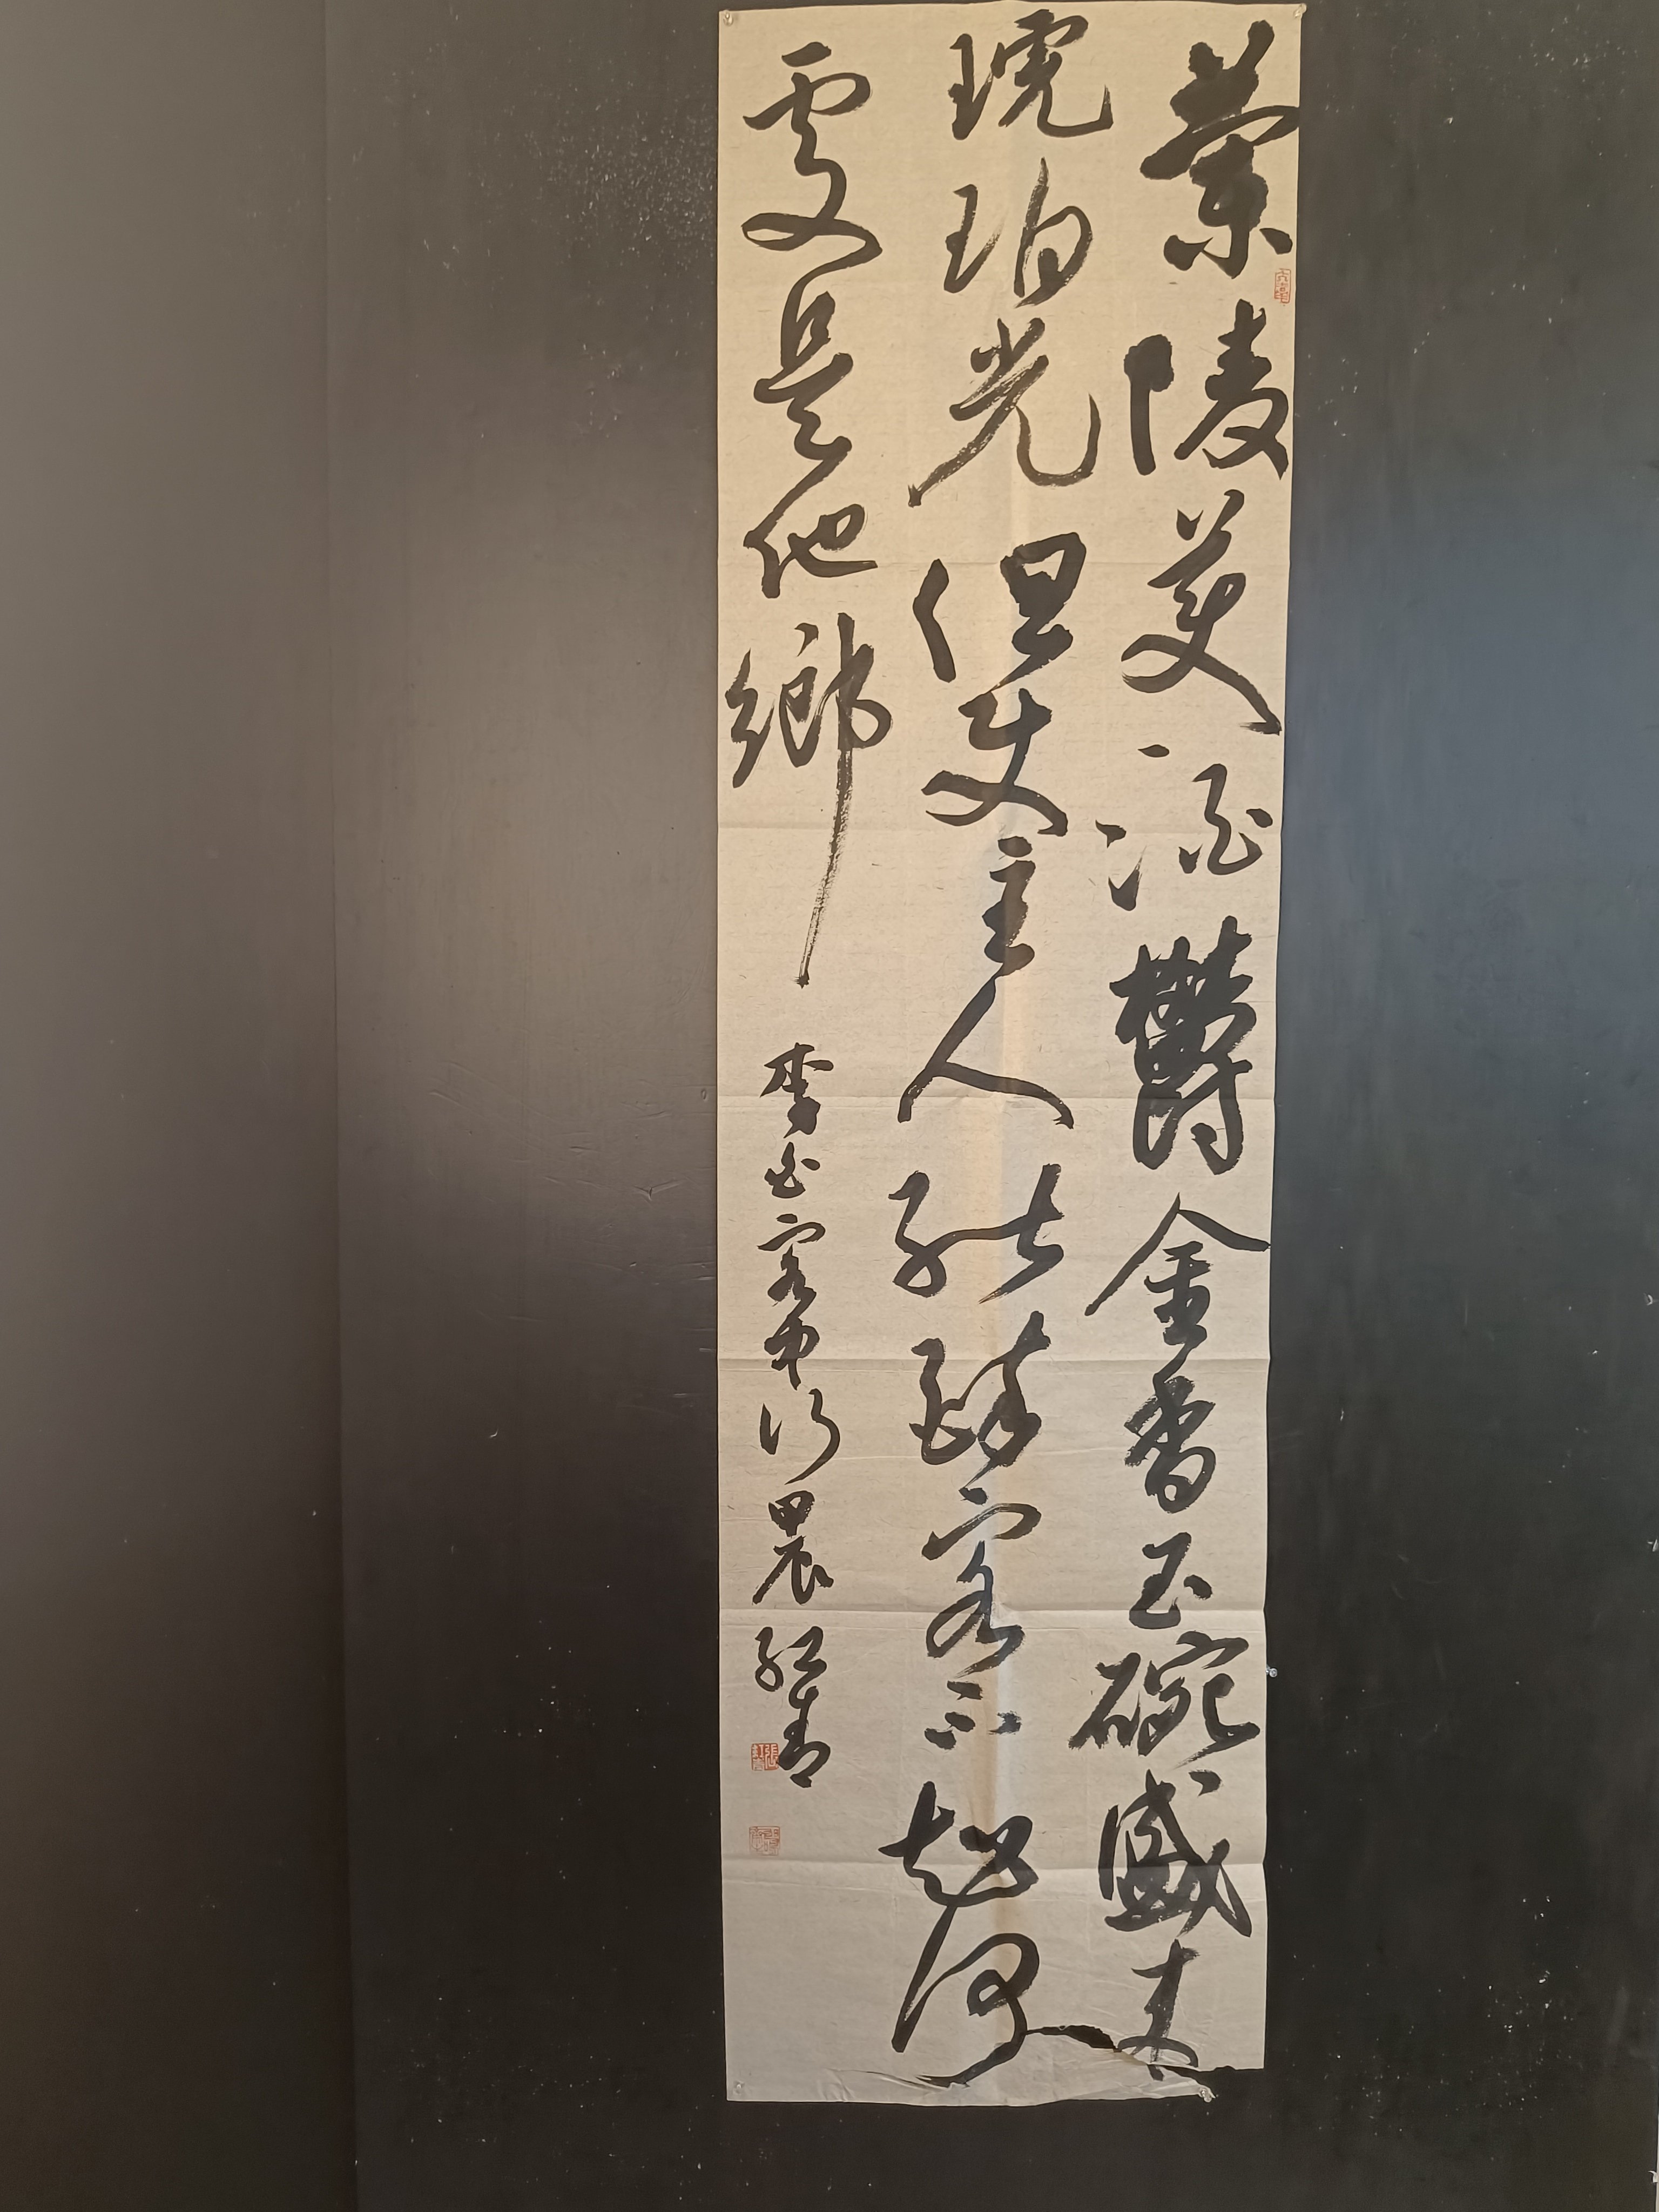 蘭陵美酒鬱金香玉碗盛来
琥珀光但使主人能醉客不知何
處是他鄉 李白客中行 甲辰 紅青